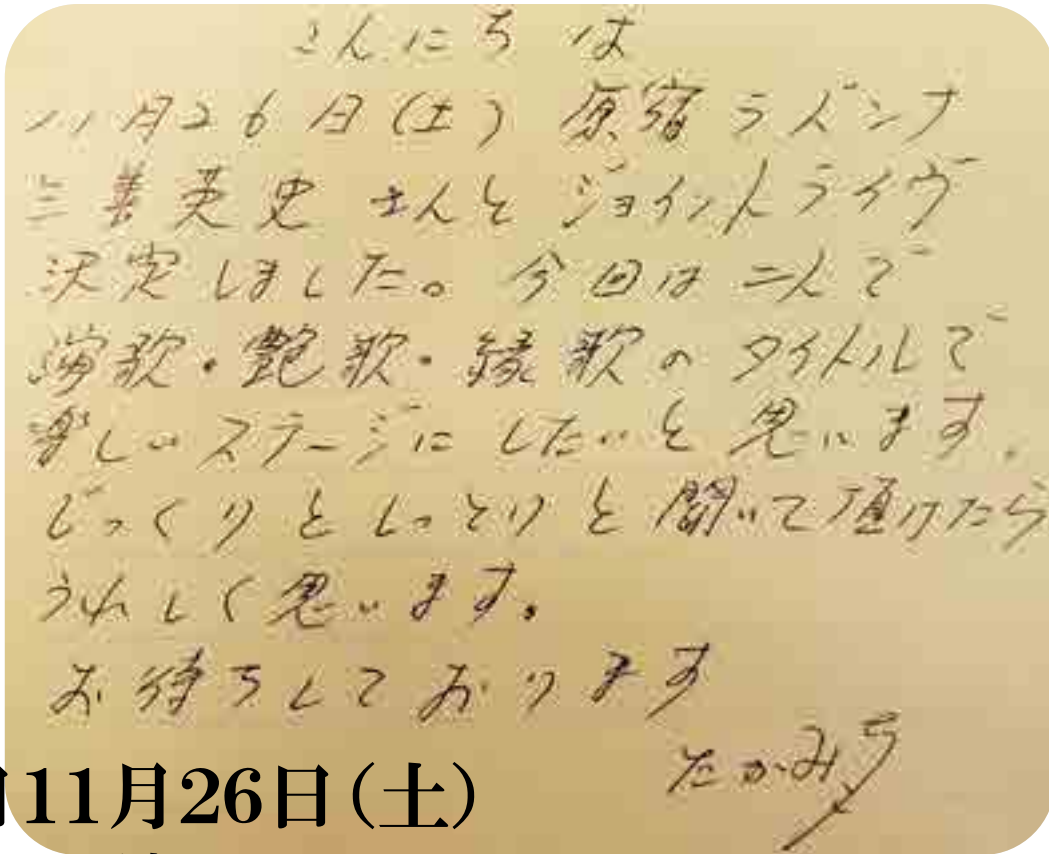 こんにちは
11月26日(土) 原宿ラドンナ
三善英史さんとジョイントライヴ
決定しました。今回は二人で
演歌・艶歌・縁歌のタイトルで
楽しいステージにしたいと思います。
じっくりとしっとりと聞いて頂けたら
うれしく思います。
お待ちしております
たかみち
11月26日(土)